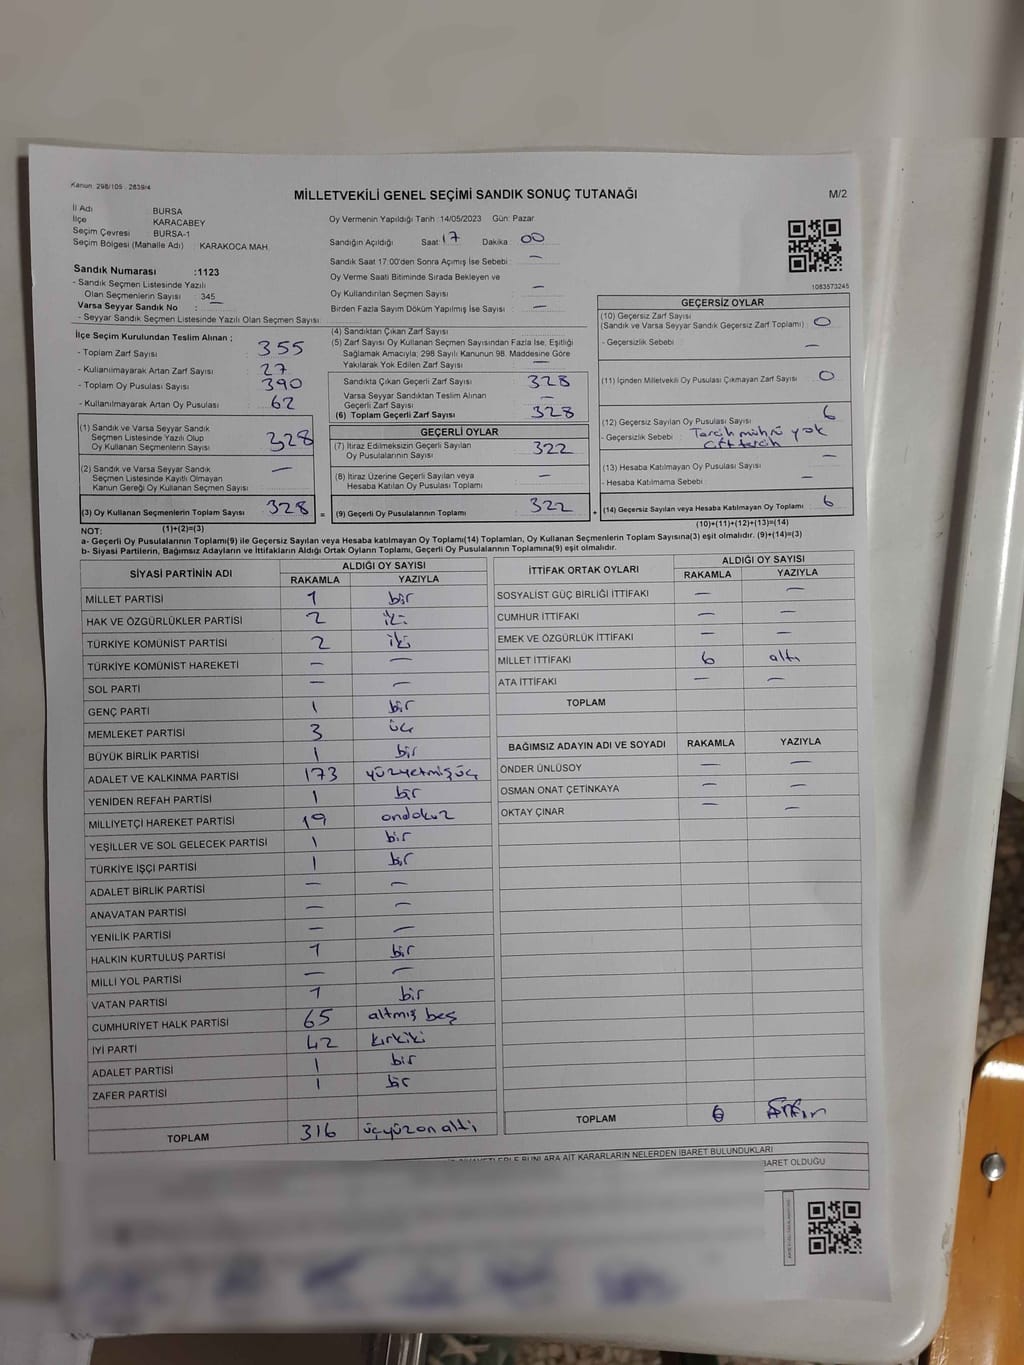 Kanun: 298/105 , 2839/4
MİLLETVEKİLİ GENEL SEÇİMİ SANDIK SONUÇ TUTANAĞI
M/2
İl Adı BURSA
İlçe KARACABEY
Seçim Çevresi BURSA-1
Seçim Bölgesi (Mahalle Adı) KARAKOCA MAH.
Sandık Numarası :1123
- Sandık Seçmen Listesinde Yazılı
Olan Seçmenlerin Sayısı : 345
Varsa Seyyar Sandık No : —
- Seyyar Sandık Seçmen Listesinde Yazılı Olan Seçmen Sayısı:
Oy Vermenin Yapıldığı Tarih :14/05/2023 Gün: Pazar
Sandığın Açıldığı Saat: 17 Dakika : 00
Sandık Saat 17:00'den Sonra Açımış İse Sebebi : —
Oy Verme Saati Bitiminde Sırada Bekleyen ve
Oy Kullandırılan Seçmen Sayısı : —
Birden Fazla Sayım Döküm Yapılmış İse Sayısı : —
1083573245
İlçe Seçim Kurulundan Teslim Alınan ;
- Toplam Zarf Sayısı : 355
- Kullanılmayarak Artan Zarf Sayısı : 27
- Toplam Oy Pusulası Sayısı : 390
- Kullanılmayarak Artan Oy Pusulası : 62
(1) Sandık ve Varsa Seyyar Sandık
Seçmen Listesinde Yazılı Olup
Oy Kullanan Seçmenlerin Sayısı 328
(2) Sandık ve Varsa Seyyar Sandık
Seçmen Listesinde Kayıtlı Olmayan
Kanun Gereği Oy Kullanan Seçmen Sayısı —
(3) Oy Kullanan Seçmenlerin Toplam Sayısı 328 =
(1)+(2)=(3)
(4) Sandıktan Çıkan Zarf Sayısı
(5) Zarf Sayısı Oy Kullanan Seçmen Sayısından Fazla İse, Eşitliği
Sağlamak Amacıyla; 298 Sayılı Kanunun 98. Maddesine Göre
Yakılarak Yok Edilen Zarf Sayısı : —
Sandıkta Çıkan Geçerli Zarf Sayısı : 328
Varsa Seyyar Sandıktan Teslim Alınan
Geçerli Zarf Sayısı : —
(6) Toplam Geçerli Zarf Sayısı : 328
GEÇERLİ OYLAR
(7) İtiraz Edilmeksizin Geçerli Sayılan
Oy Pusulalarının Sayısı 322
(8) İtiraz Üzerine Geçerli Sayılan veya
Hesaba Katılan Oy Pusulası Toplamı —
(9) Geçerli Oy Pusulalarının Toplamı 322 +
GEÇERSİZ OYLAR
(10) Geçersiz Zarf Sayısı
(Sandık ve Varsa Seyyar Sandık Geçersiz Zarf Toplamı) : 0
- Geçersizlik Sebebi : —
(11) İçinden Milletvekili Oy Pusulası Çıkmayan Zarf Sayısı : 0
(12) Geçersiz Sayılan Oy Pusulası Sayısı 6
- Geçersizlik Sebebi : Tercih mührü yok
Çift tercih
(13) Hesaba Katılmayan Oy Pusulası Sayısı —
- Hesaba Katılmama Sebebi : —
(14) Geçersiz Sayılan veya Hesaba Katılmayan Oy Toplamı 6
(10)+(11)+(12)+(13)=(14)
NOT:
a- Geçerli Oy Pusulalarının Toplamı(9) ile Geçersiz Sayılan veya Hesaba katılmayan Oy Toplamı(14) Toplamları, Oy Kullanan Seçmenlerin Toplam Sayısına(3) eşit olmalıdır. (9)+(14)=(3)
b- Siyasi Partilerin, Bağımsız Adayların ve İttifakların Aldığı Ortak Oyların Toplamı, Geçerli Oy Pusulalarının Toplamına(9) eşit olmalıdır.
SİYASİ PARTİNİN ADI ALDIĞI OY SAYISI
RAKAMLA YAZIYLA
MİLLET PARTİSİ 1 bir
HAK VE ÖZGÜRLÜKLER PARTİSİ 2 iki
TÜRKİYE KOMÜNİST PARTİSİ 2 iki
TÜRKİYE KOMÜNİST HAREKETİ — —
SOL PARTİ — —
GENÇ PARTİ 1 bir
MEMLEKET PARTİSİ 3 üç
BÜYÜK BİRLİK PARTİSİ 1 bir
ADALET VE KALKINMA PARTİSİ 173 yüzyetmişüç
YENİDEN REFAH PARTİSİ 1 bir
MİLLİYETÇİ HAREKET PARTİSİ 19 ondokuz
YEŞİLLER VE SOL GELECEK PARTİSİ 1 bir
TÜRKİYE İŞÇİ PARTİSİ 1 bir
ADALET BİRLİK PARTİSİ — —
ANAVATAN PARTİSİ — —
YENİLİK PARTİSİ — —
HALKIN KURTULUŞ PARTİSİ 1 bir
MİLLİ YOL PARTİSİ — —
VATAN PARTİSİ 1 bir
CUMHURİYET HALK PARTİSİ 65 altmış beş
İYİ PARTİ 42 kırkiki
ADALET PARTİSİ 1 bir
ZAFER PARTİSİ 1 bir
TOPLAM 316 üçyüzonaltı
İTTİFAK ORTAK OYLARI ALDIĞI OY SAYISI
RAKAMLA YAZIYLA
SOSYALİST GÜÇ BİRLİĞİ İTTİFAKI — —
CUMHUR İTTİFAKI — —
EMEK VE ÖZGÜRLÜK İTTİFAKI — —
MİLLET İTTİFAKI 6 altı
ATA İTTİFAKI — —
TOPLAM
BAĞIMSIZ ADAYIN ADI VE SOYADI RAKAMLA YAZIYLA
ÖNDER ÜNLÜSOY — —
OSMAN ONAT ÇETİNKAYA — —
OKTAY ÇINAR — —
TOPLAM
BUNLARA AİT KARARLARIN NELERDEN İBARET BULUNDUKLARI
BARET OLDUĞU